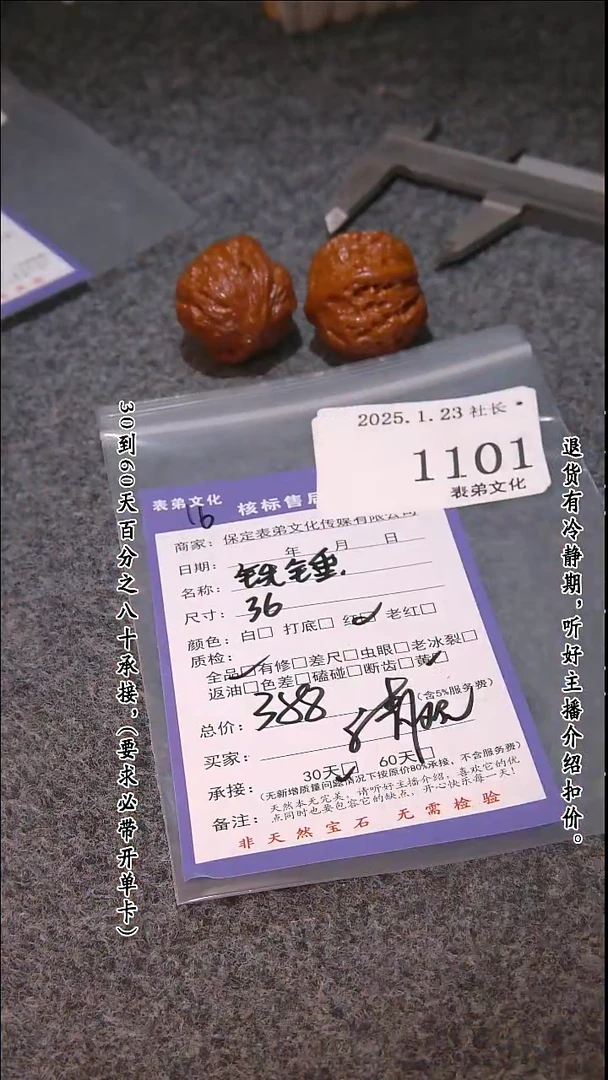 30到60天百分之八十承接，(要求必带开单卡)
退货有冷静期，听好主播介绍扣价。
2025.1.23 社长
1101
表弟文化
表弟文化 核标售后
16
商家：保定表弟文化传媒有限公司
日期： 年 月 日
名称：铁锤.
尺寸：36
颜色：白□ 打底□ 红□ 老红□
质检：全品□有修□差尺□虫眼□老冰裂□
返油□色差□磕碰□断齿□黄□
总价：388 (含5%服务费)
买家：
承接：30天□ 60天□
(无新增质量问题情况下按原价80%承接，不含服务费)
备注：天然本无完美，请听好主播介绍，喜欢它的优
点同时也要包容它的缺点，开心快乐每一天！
非天然宝石 无需检验